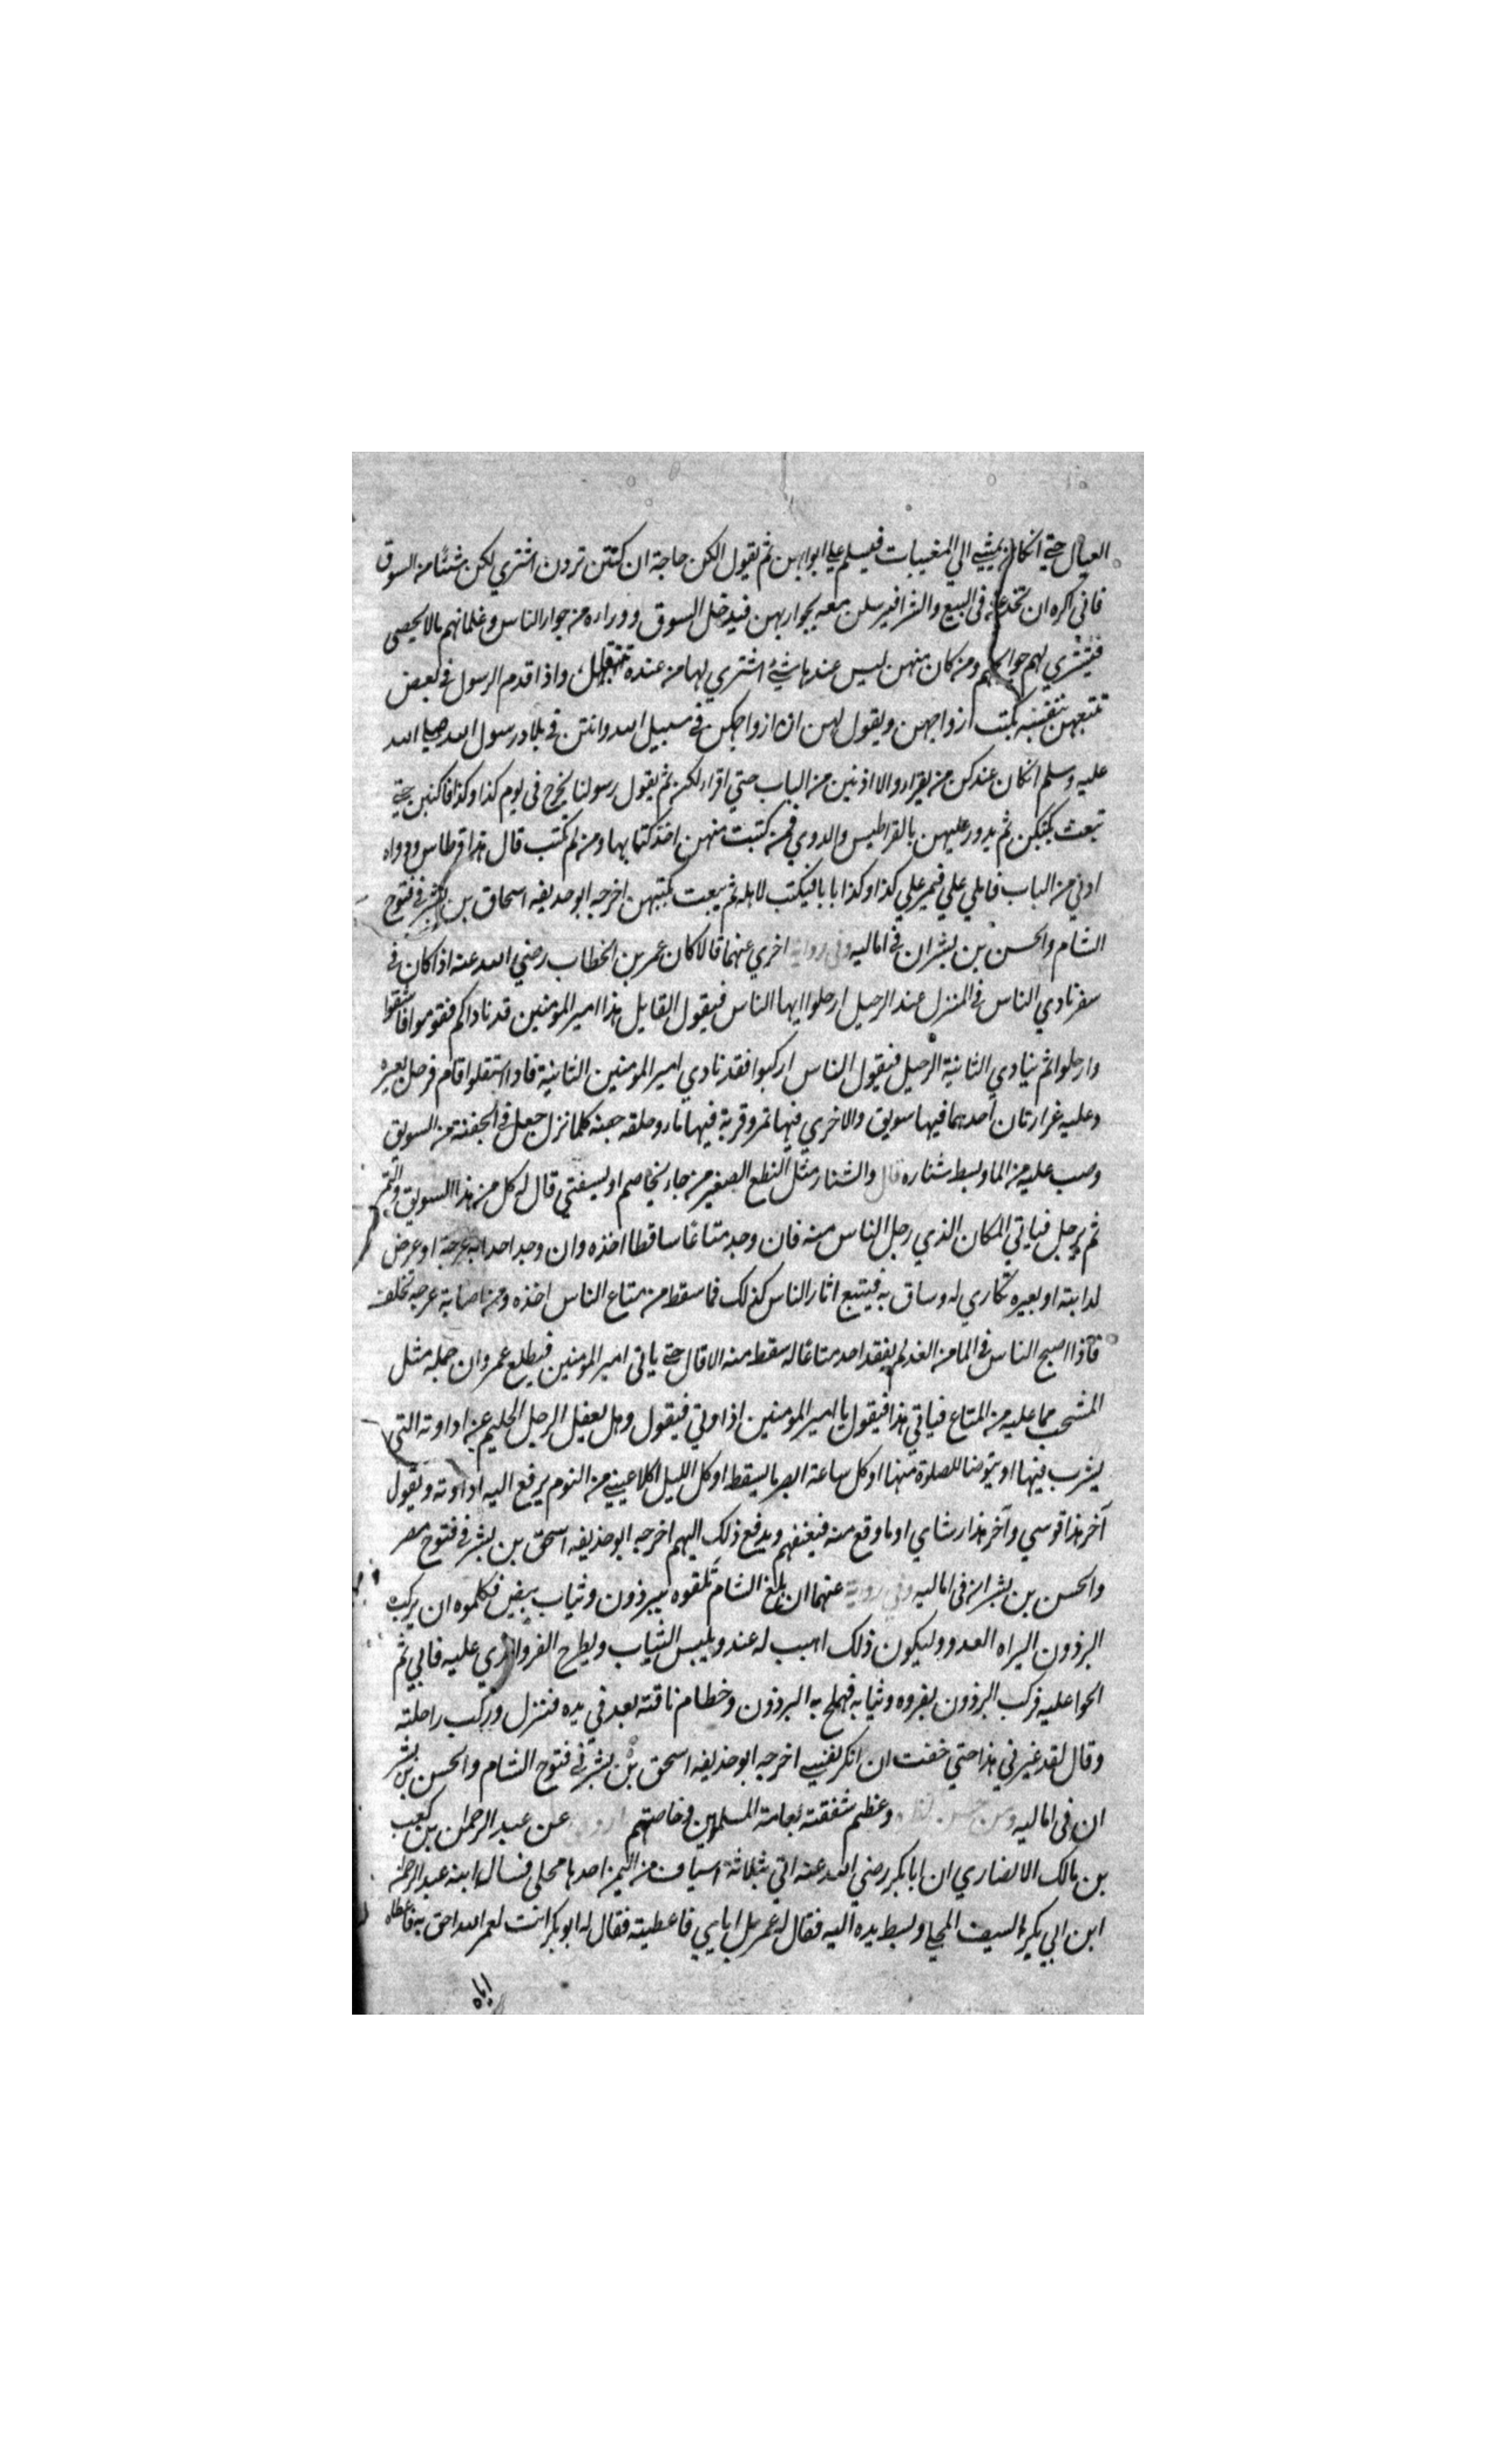 العيال حتي انكان يمشي الي المغيبات فيسلم علي ابوابهن ثم يقول الكن حاجة ان كنتن تردن اشتري لكن شئا من السوق
فاني اكره ان تخدعن في البيع والشرا فيرسلن معه بجواريهن فيدخل السوق ووراءه من جوار الناس وغلمانهم مالا يحصي
فيشتري لهم حوايجهم ومن كان منهن ليس عندها شيئ اشتري لها من عنده واذا قدم الرسول في بعض
تتبعهن بنفسه بكتب ازواجهن ويقول لهن ان ازواجكن في سبيل الله وانتن في بلاد رسول الله صلي الله
عليه وسلم انكان عندكن من يقراء والا اذنين من الباب حتي اقراء لكن ثم يقول رسولنا يخرج في يوم كذا وكذا فاكتبن حتي
تبعث بكتبكن ثم يدور عليهن بالقراطيس والدوي فمن كتبت منهن اخذ كتابها ومن لم تكتب قال هذا قرطاس ودواه
ادني من الباب فاملي علي فيمر علي كذا وكذا بابا فيكتب لاهله ثم يبعث بكتبهن اخرجه ابو حديفه اسحاق بن بشر في فتوح
الشام والحسن بن بشران في اماليه وفي رواية اخري عنهما قالا كان عمر بن الخطاب رضي الله عنه اذا كان في
سفر نادي الناس في المنزل عند الرحيل ارحلوا ايها الناس فيقول القايل هذا امير المومنين قد ناداكم فقوموا فاسقوا
وارحلوا ثم ينادي الثانية الرحيل فيقول الناس اركبوا فقد نادي امير المومنين الثانية فاذا استقلوا قام فرحل بعيره
وعليه غرارتان احدهما فيها سويق والاخري فيها تمر وقربة فيها ماء وحلقه جفنه كلما نزل جعل في الجفنة من السويق
وصب عليه من الما وبسط شناره قال والشنار مثل النطع الصغير من جاء يخاصم او يستفتي قال له كل من هذا السويق والتمر
ثم يرحل فياتي المكان الذي رحل الناس منه فان وجد متاعا ساقطا اخذه وان وجد احدا به عرجة او عرض
لدابته او بعيره تكاري له وساق به فيتبع اثار الناس كذلك فما سقط من متاع الناس اخذه ومن اصابة عرجه تخلف
فاذا اصبح الناس في الما من الغد لم يفقد احد متاعا له سقط منه الا قال حتي ياتي امير المومنين فيطلع عمر وان جمله مثل
المشجب مما عليه من المتاع فياتي هذا فيقول يا امير المومنين اذاوتي فيقول وهل يعفل الرجل الحليم عن اداوته التي
يشرب فيها او يتوضا للصلوة منها او كل ساعة ابصر ما يسقط او كل الليل اكلا عيني من النوم يرفع اليه اداوته ويقول
آخر هذا قوسي وآخر هذا رشاي او ما وقع منه فيعنفهم ويدفع ذلك اليهم اخرجه ابو حذيفه اسحق بن بشر في فتوح مصر
والحسن بن بشران في اماليه وفي رواية عنهما ان بلغ الشام تلقوه ببرذون وثياب بيض فكلموه ان يركب
البرذون اليراه العدو وليكون ذلك اهيب له عند ويلبس الثياب ويطرح الفرو الذي عليه فابي ثم
الحوا عليه فركب البرذون بفروه وثيابه فهملج به البرذون وخطام ناقته بعد في يده فنزل وركب راحلته
وقال لقد غيرني هذا حتي خفت ان انكر نفسي اخرجه ابو حذيفه اسحق بن بشر في فتوح الشام والحسن بن بشر
ان في اماليه ومن حسن وعظم شفقته بعامة المسلمين وخاصتهم عن عبد الرحمن بن كعب
بن مالك الانصاري ان ابا بكر رضي الله عنه اتي بثلاثة اسياف من اليمن احدها محلي فسال ابنه عبد الرحمن
ابن ابي بكر السيف المحلي وبسط يده اليه فقال له عمر بل اياي فاعطيته فقال له ابو بكر انت لعمر الله احق به فاعطاه
اياه